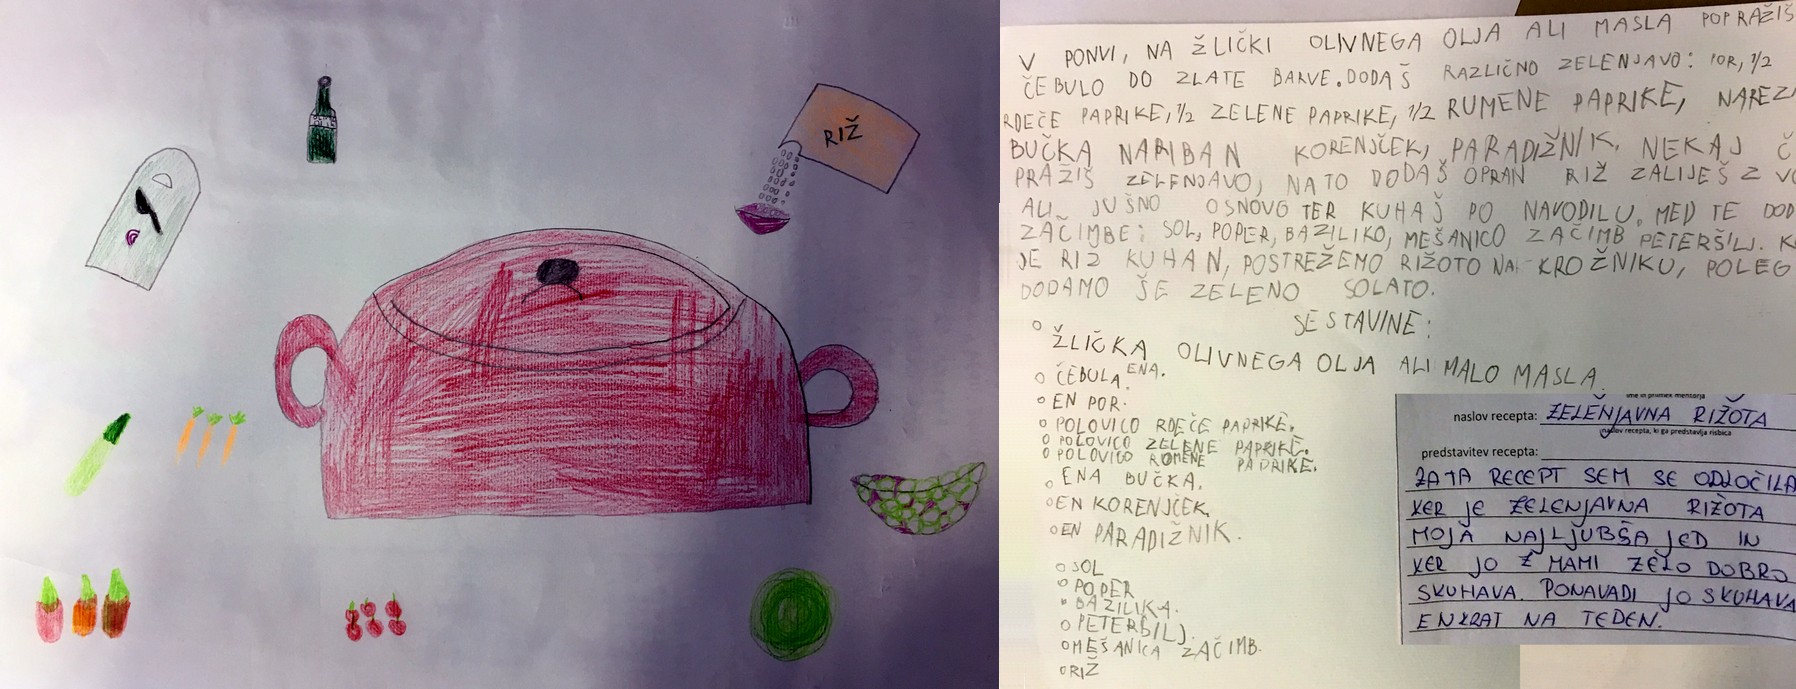 RIŽ
V PONVI, NA ŽLIČKI OLIVNEGA OLJA ALI MASLA POPRAŽIŠ
ČEBULO DO ZLATE BARVE. DODAŠ RAZLIČNO ZELENJAVO: POR, 1/2
RDEČE PAPRIKE, 1/2 ZELENE PAPRIKE, 1/2 RUMENE PAPRIKE,
BUČKA NARIBAN KORENJČEK, PARADIŽNIK, NEKAJ
PRAŽIŠ ZELENJAVO, NATO DODAŠ OPRAN RIŽ ZALIJEŠ Z
ALI JUŠNO OSNOVO TER KUHAŠ PO NAVODILU. MED TE
ZAČIMBE: SOL, POPER, BAZILIKO, MEŠANICO ZAČIMB PETERŠILJ.
JE RIŽ KUHAN, POSTREŽEMO RIŽOTO NA KROŽNIKU, POLEG
DODAMO ŠE ZELENO SOLATO.
SESTAVINE:
ŽLIČKA OLIVNEGA OLJA ALI MALO MASLA.
ČEBULA ENA.
EN POR.
POLOVICO RDEČE PAPRIKE.
POLOVICO ZELENE PAPRIKE.
POLOVICO ROMENE PAPRIKE.
ENA BUČKA.
EN KORENJČEK.
EN PARADIŽNIK.
SOL
POPER
BAZILIKA.
PETERŠILJ.
MEŠANICA ZAČIMB.
RIŽ
ime in priimek mentorja
naslov recepta: ZELENJAVNA RIŽOTA
naslov recepta, ki ga predstavlja risbica
predstavitev recepta:
ZA TA RECEPT SEM SE ODLOČILA
KER JE ZELENJAVNA RIŽOTA
MOJA NAJLJUBŠA JED IN
KER JO Z MAMI ZELO DOBRO
SKUHAVA. PONAVADI JO SKUHAVA
ENKRAT NA TEDEN.